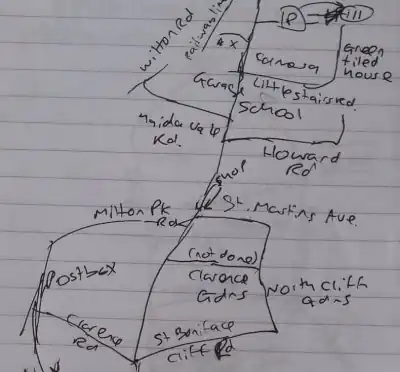 P
Wilton Rd
railway line
x x
Green
tiled
house
Garage
Littlestairs rd.
School
Maida Vale
Rd.
Howard
Rd
shop
St. Martins Ave.
Milton Pk
Rd
(not done)
Clarence
Gdns
North Cliff
Gdns
Postbox
Clarence
Rd
St Boniface
Cliff Rd